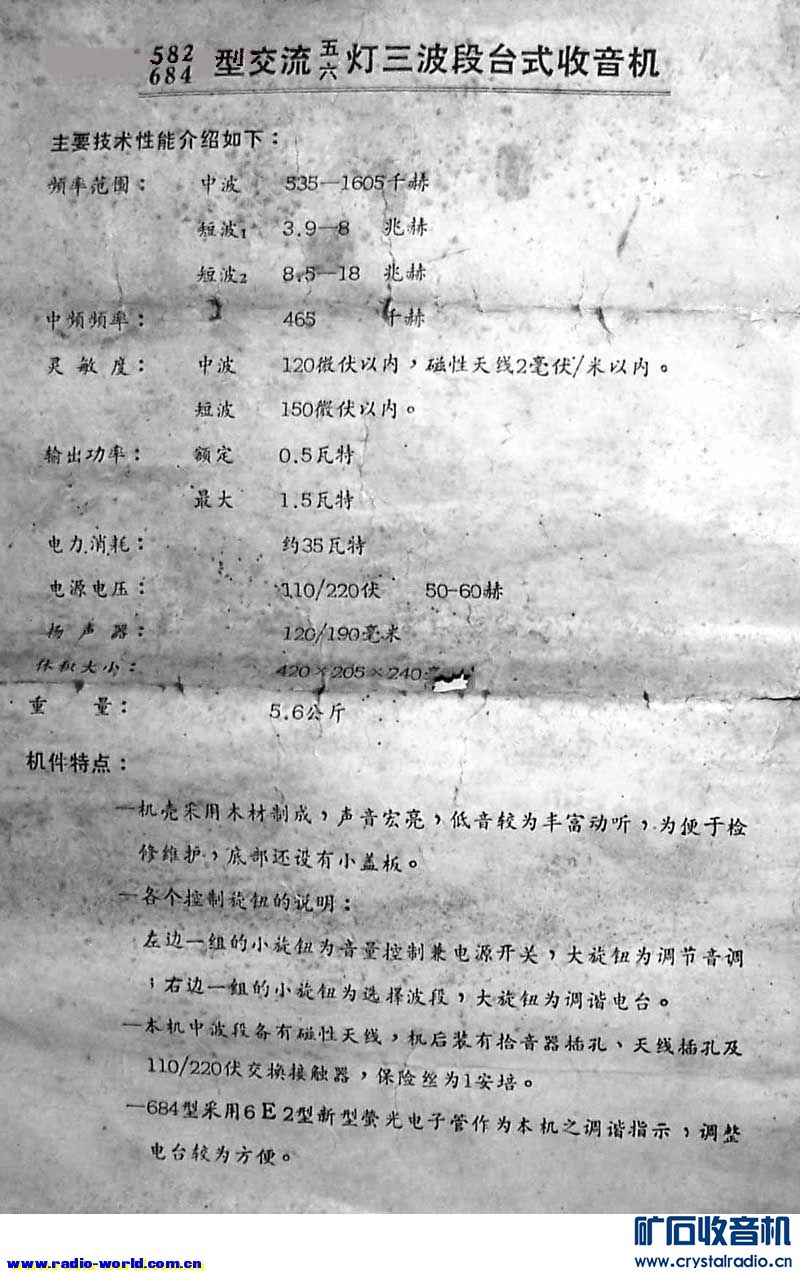 582/684 型交流五/六灯三波段台式收音机
主要技术性能介绍如下：
频率范围： 中波 535—1605千赫
短波1 3.9—8 兆赫
短波2 8.5—18 兆赫
中频频率： 465 千赫
灵敏度： 中波 120微伏以内，磁性天线2毫伏/米以内。
短波 150微伏以内。
输出功率： 额定 0.5瓦特
最大 1.5瓦特
电力消耗： 约35瓦特
电源电压： 110/220伏 50-60赫
扬声器： 120/190毫米
体积大小： 420×205×240
重量： 5.6公斤
机件特点：
—机壳采用木材制成，声音宏亮，低音较为丰富动听，为便于检
修维护，底部还设有小盖板。
—各个控制旋钮的说明：
左边一组的小旋钮为音量控制兼电源开关，大旋钮为调节音调
；右边一组的小旋钮为选择波段，大旋钮为调谐电台。
—本机中波段备有磁性天线，机后装有拾音器插孔、天线插孔及
110/220伏交换接触器，保险丝为1安培。
—684型采用6E2型新型萤光电子管作为本机之调谐指示，调整
电台较为方便。
矿石收音机
www.radio-world.com.cn
www.crystalradio.cn